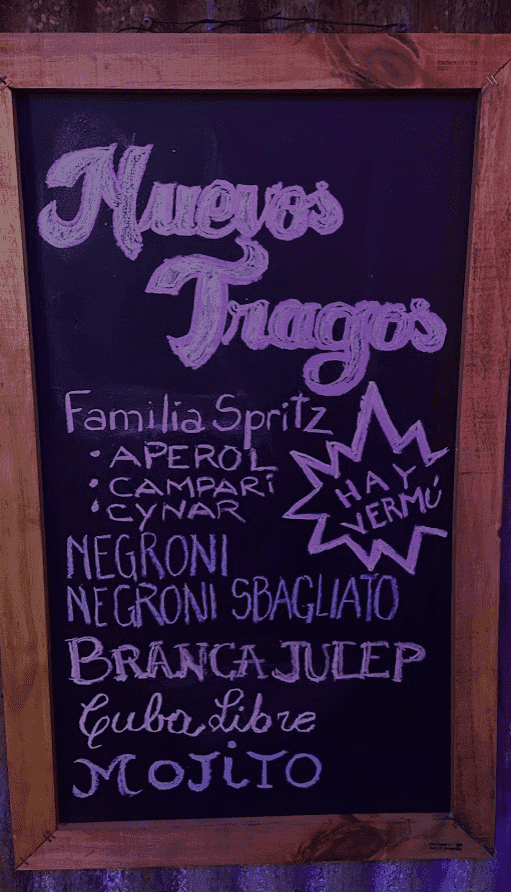 Nuevos
Tragos
Familia Spritz
• APEROL
• CAMPARI
• CYNAR
HAY
VERMÚ
NEGRONI
NEGRONI SBAGLIATO
BRANCA JULEP
Cuba Libre
MOJiTO